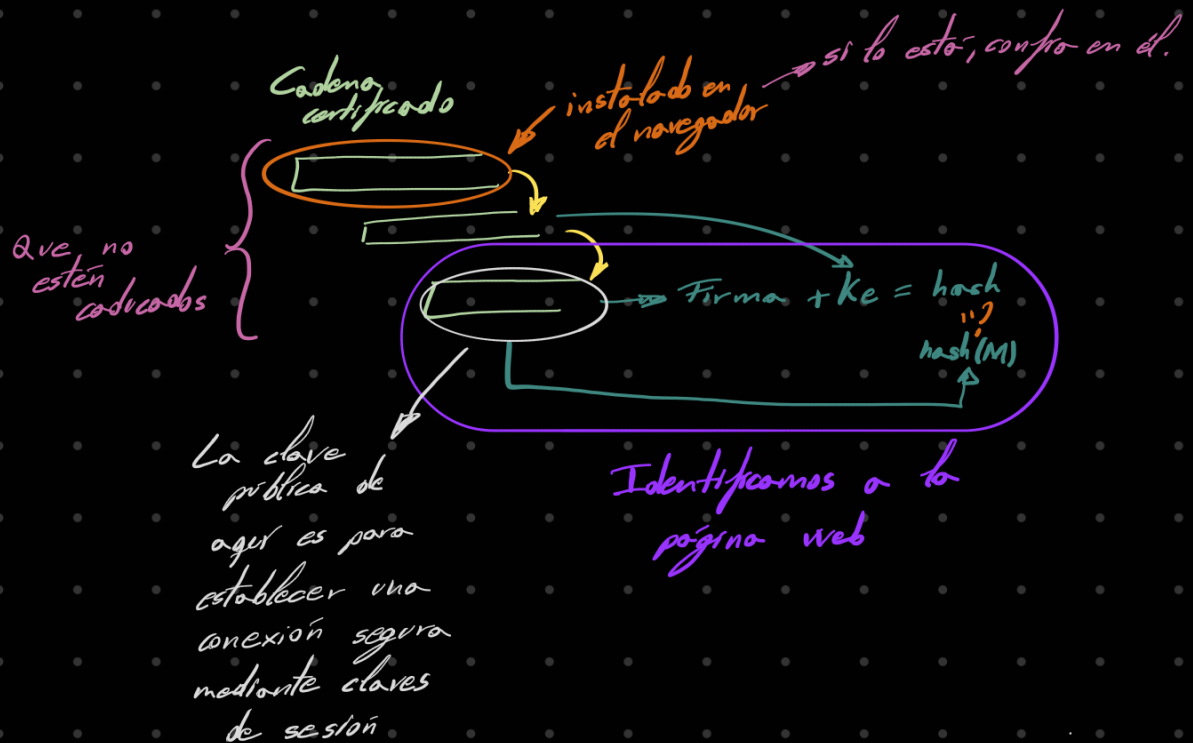 si lo está, confío en él.
Cadena
certificado
instalado en
el navegador
Que no
estén
caducados
Firma + Ke = hash
¿?
hash(M)
La clave
pública de
aquí es para
establecer una
conexión segura
mediante claves
de sesión
Identificamos a la
página web